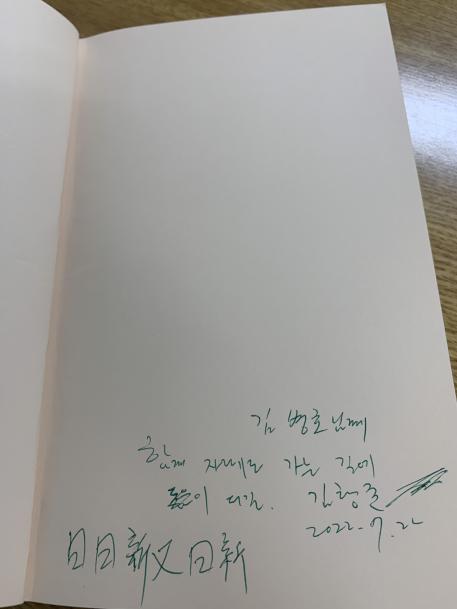 김 병호님께
함께 미래로 가는 길에
이 되길. 김형준
2022. 7. 22
日日新又日新